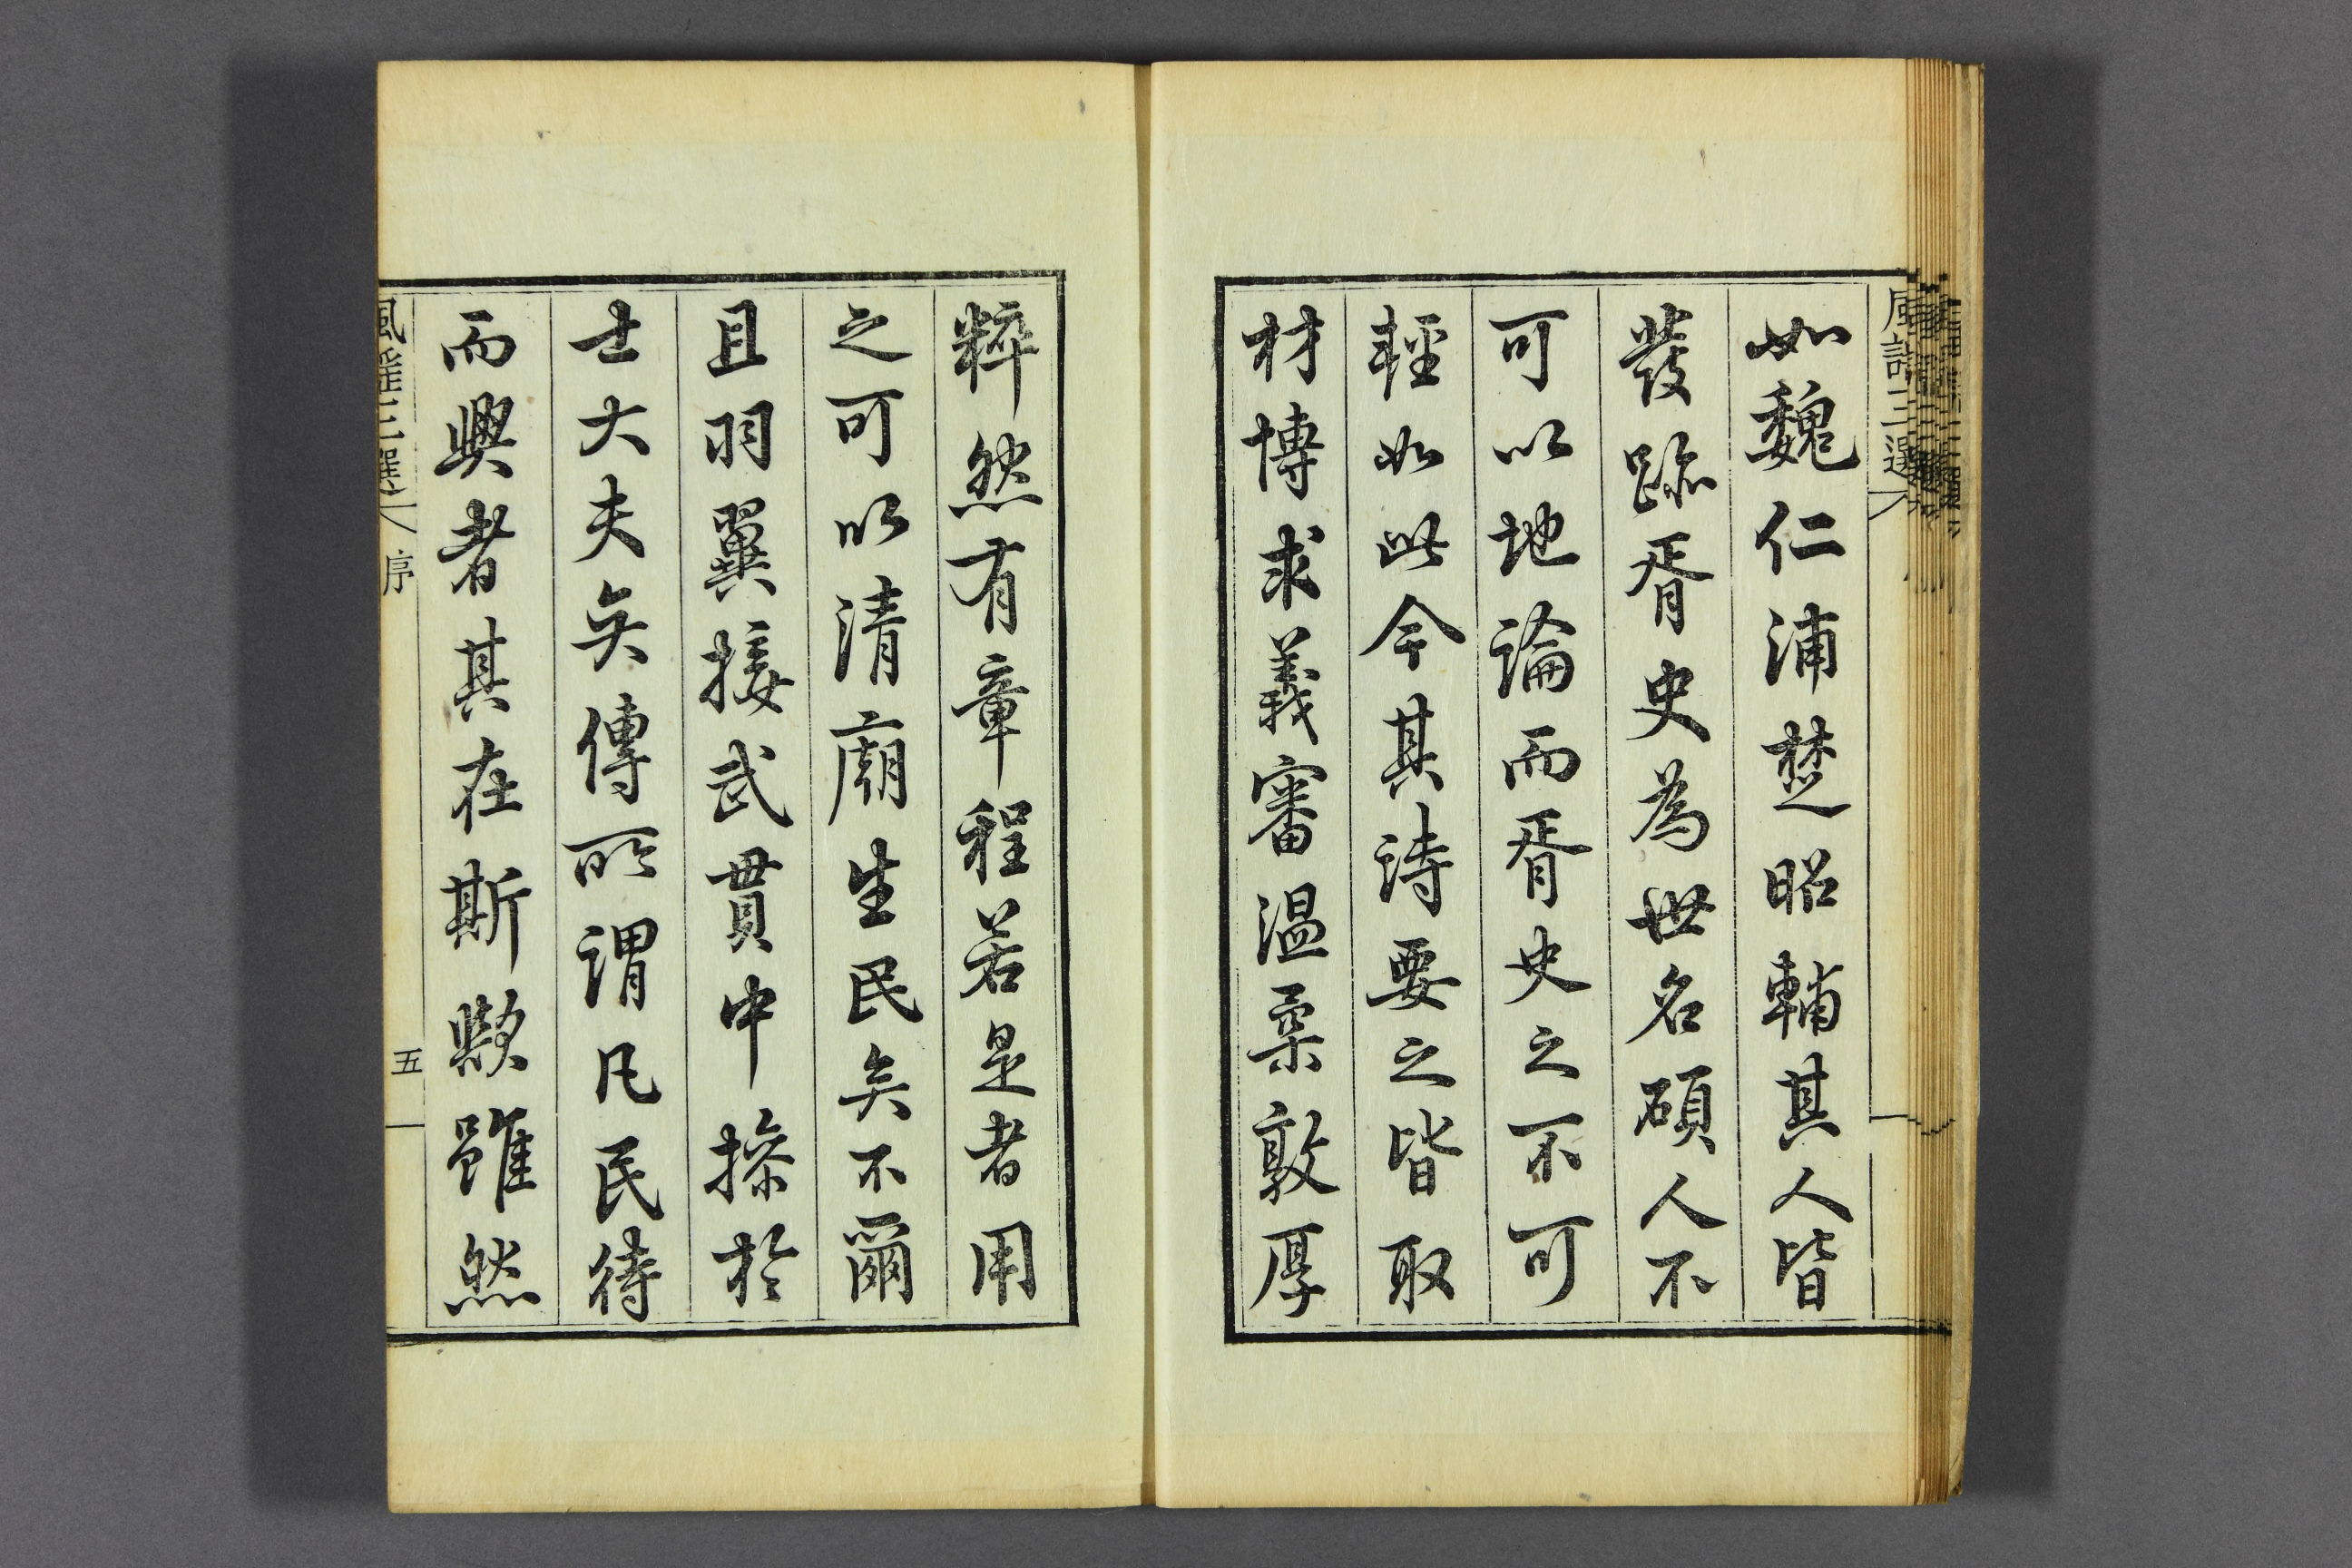 風謠三選
如魏仁浦楚昭輔其人皆
發跡胥史為世名碩人不
可以地論而胥史之不可
輕如此今其詩要之皆取
材博求義審温柔敦厚
粹然有章程若是者用
之可以清廟生民矣不爾
且羽翼接武貫中操於
士大夫矣傳所謂凡民待
而興者其在斯歟雖然
風謠三選 序 五